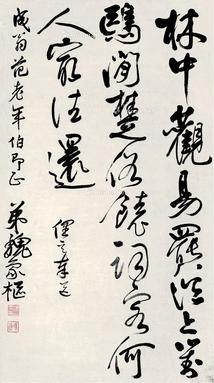 林中觀易罷溪上對
鷗閒楚俗饒詞客何
人最往還
成翁范老年伯正
弟魏象樞